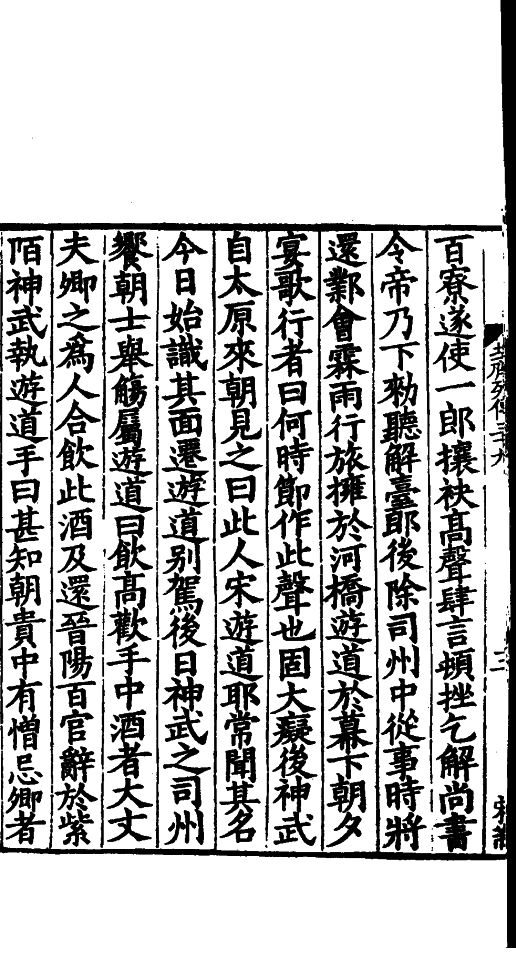 百寮遂使一郎攘袂高聲肆言頓挫乞解尚書
令帝乃下勑聽解臺郎後除司州中從事時將
還鄴會霖雨行旅擁於河橋遊道於幕下朝夕
宴歌行者曰何時節作此聲也固大癡後神武
自太原來朝見之曰此人宋遊道耶常聞其名
今日始識其面遷遊道别駕後日神武之司州
饗朝士舉觴屬遊道曰飲高歡手中酒者大丈
夫卿之爲人合飲此酒及還晉陽百官辭於紫
陌神武執遊道手曰甚知朝貴中有憎忌卿者